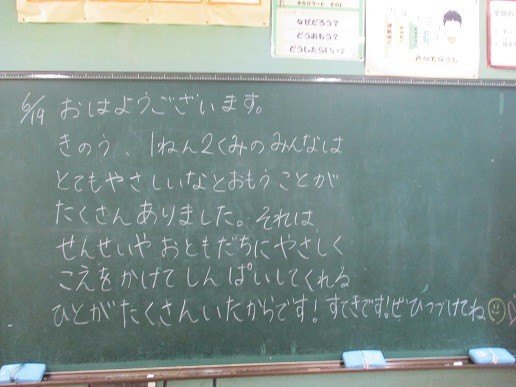 まなびワード その1
なぜだろう?
どうおもう?
どうしたらいい?
声のものさし
6/19 おはようございます。
きのう、1ねん2くみのみんなは
とてもやさしいなとおもうことが
たくさんありました。それは、
せんせいやおともだちにやさしく
こえをかけてしんぱいしてくれる
ひとがたくさんいたからです!すてきです!ぜひつづけてね